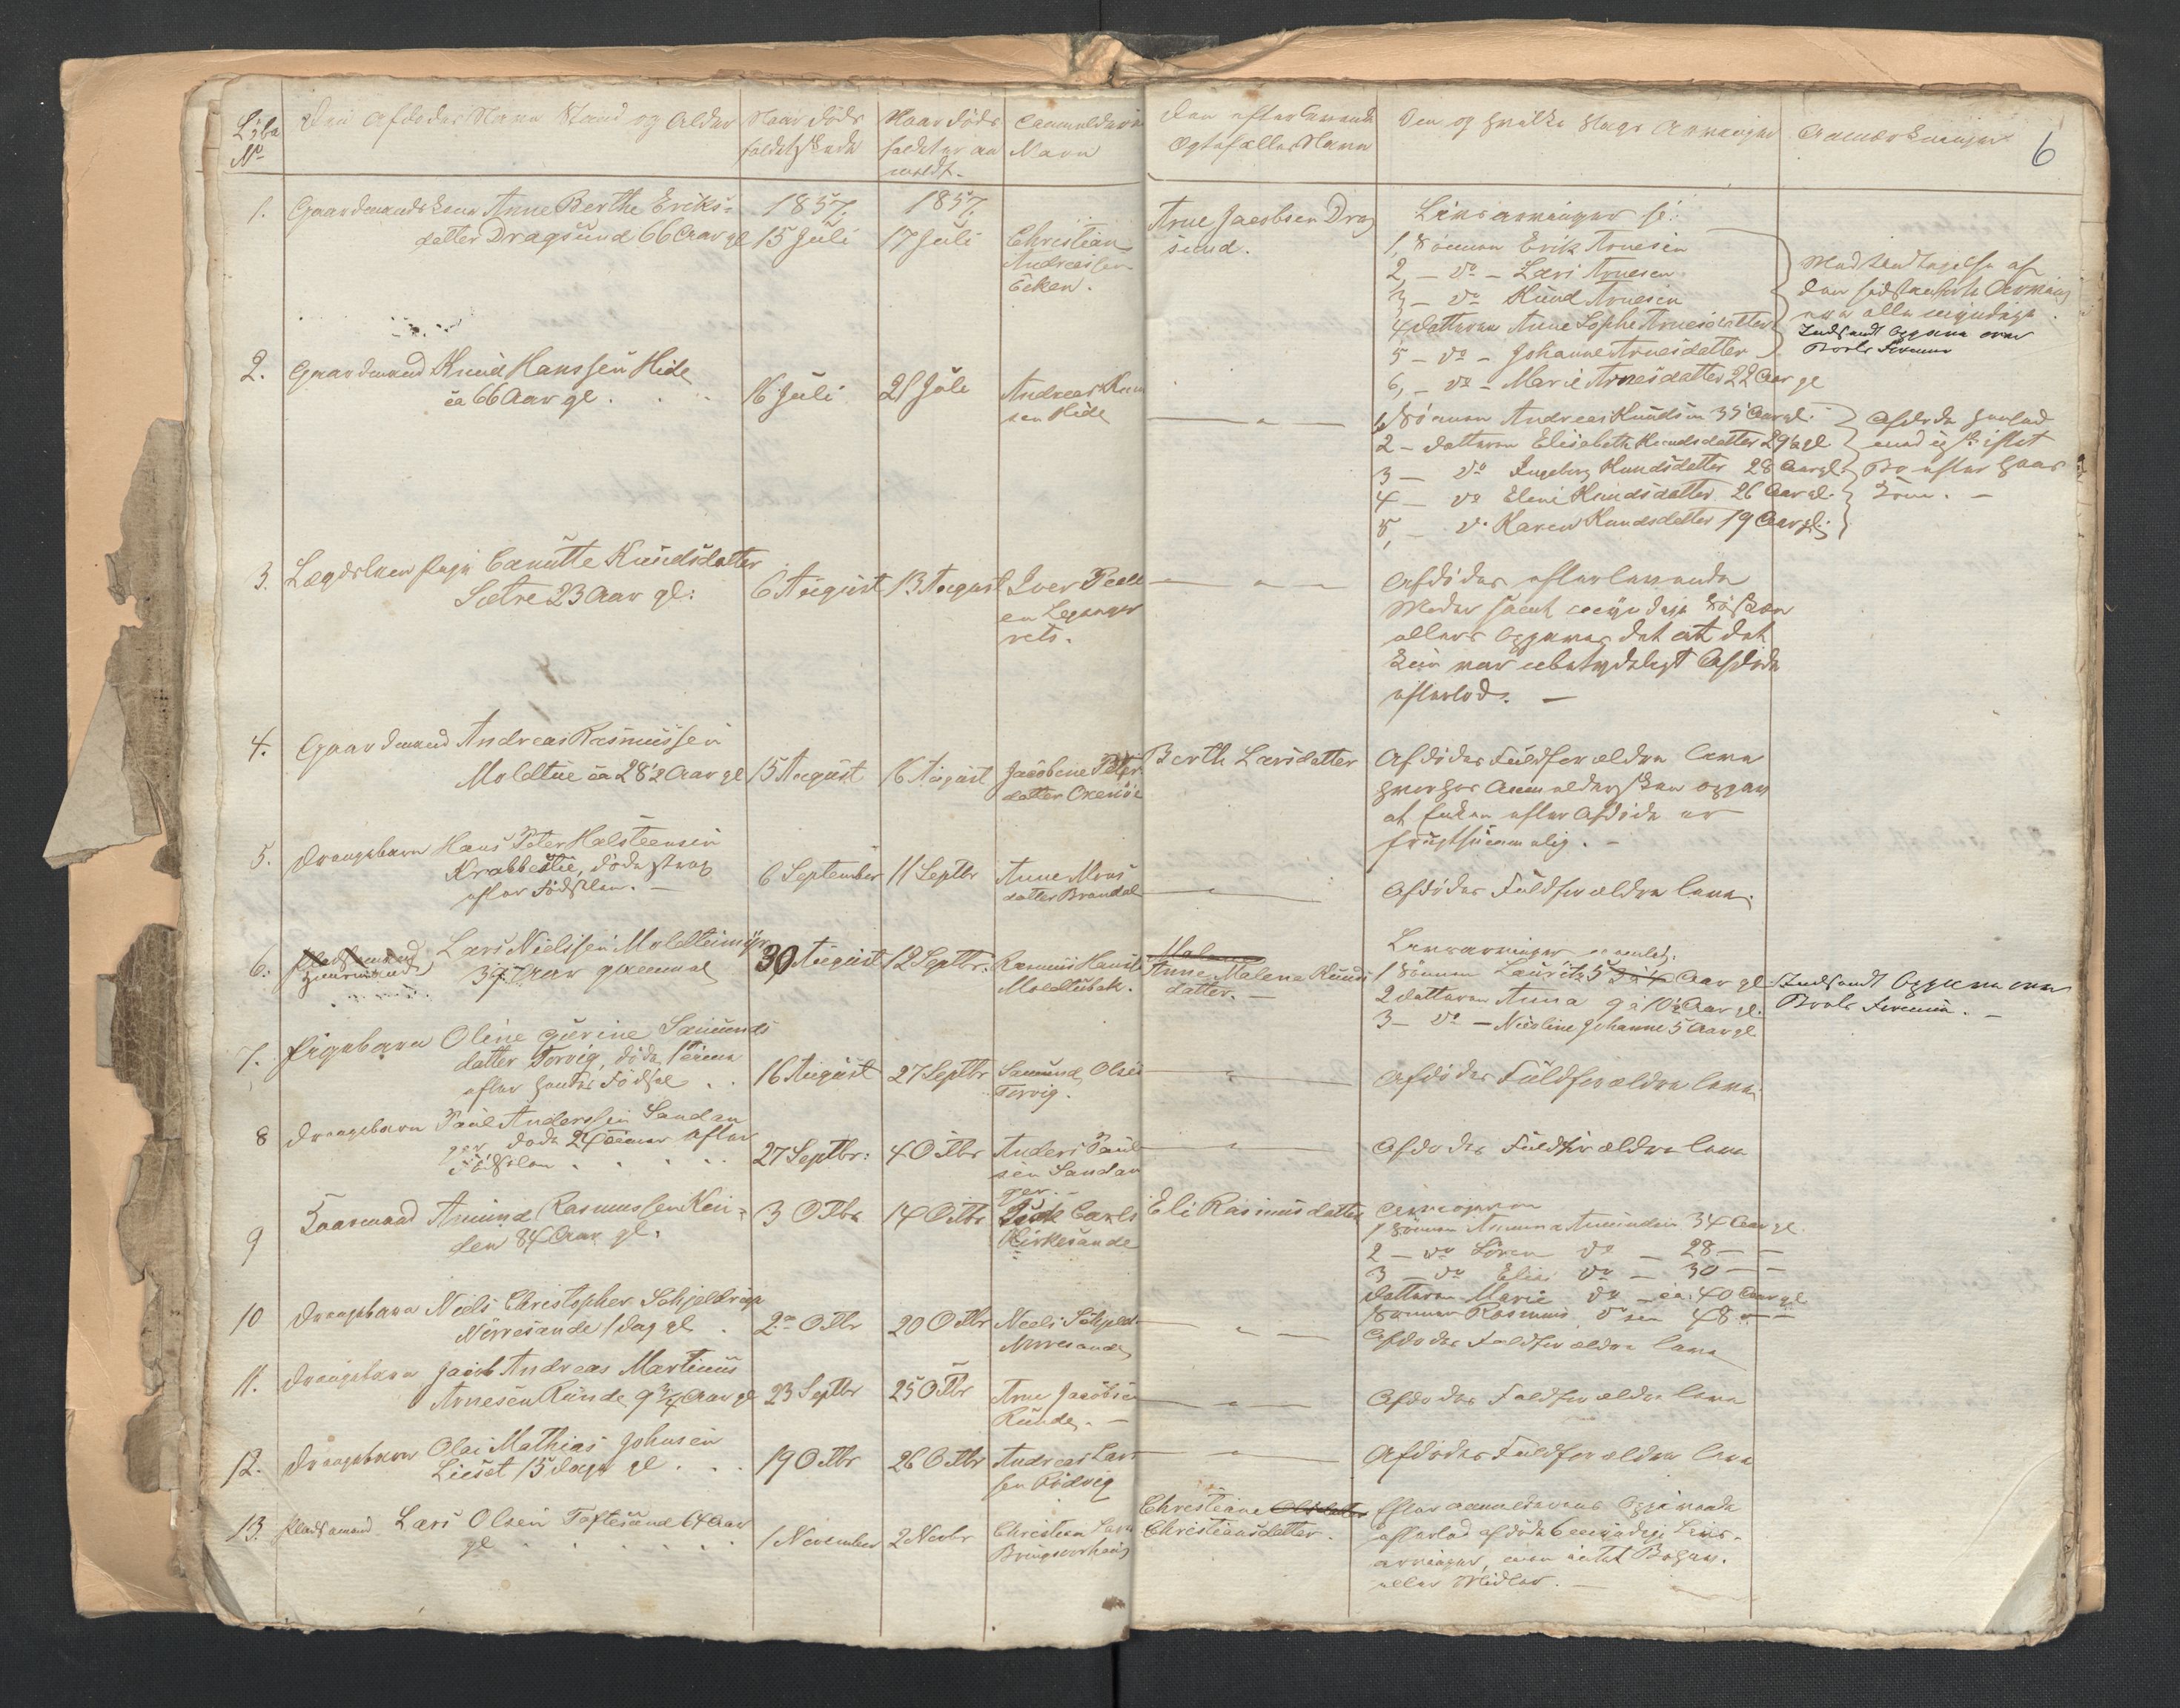 Löbe No
Den afdødes Navn Stand og Alder
Naar döds faldet skede
Naar döds faldet er an meldt.
Anmelderens Navn
Den efterlevende Ægtefælles Navn
Den og hvilke Slags Arvinger
Anmærkninger
6
1.
Gaardmandskone Anne Berthe Eriks-
datter Dragsund 66 Aar gl
1857.
15 Juli
1857.
17 Juli
Christian
Andreassen
Eeken.
Arne Jacobsen Drag
sund.
Livsarvinger
1, Sönnen Erik Arnesen
2, - do - Lars Arnesen
3 - do Knud Arnesen
4 datteren Anne Sophe Arnesdatter
5 - do - Johanne Arnesdatter
6, - do - Marie Arnesdatter 22 Aar gl
Med Undtagelse af
den sidstanførte Arving
ere alle myndige.
Indsendt Opgave over
Boets Formue
2.
Gaardmand Knud Hanssen Hide
ca 66 Aar gl.
16 Juli
21 Juli
Andreas Knu
sen Hide
1, Sönnen Andreas Knudsen 35 Aar gl.
2 - datteren Elisabeth Knudsdatter 29 Aar gl
3 - do Ingeborg Knudsdatter 28 Aar gl.
4 - do Eleni Knudsdatter 26 Aar gl.
5, - do Karen Knudsdatter 19 Aar gl.
Afdøde hensad
med uskiftet
Bo efter hans
Kone. -
3.
Lægdslem Pige Canutte Knudsdatter
Sætre 23 Aar gl:
6 August
13 August
Iver Peder
en Leganger
vets.
Afdödes efterlevende
Moder samt myndige Söskende
ellers Opgaves det at det
kun var ubetydeligt Afdøde
efterlod. -
4.
Gaardmand Andreas Rasmussen
Moldtue ca 28½ Aar gl
15 August
16 August
Jacobine Peders
datter
Berth Larsdatter
Afdödes Fuldforældre leve
hvorhos Anmeldersken opgav
at Enken efter Afdøde er
frugtsommelig. -
5.
Drengebarn Hans Peter Halsteensen
Krabbestie, döde strax
efter Födselen. -
6 September
11 Septbr
Anne Mons
datter Brandal
Afdödes Fuldforældre leve.
6.
Pladsmand
Huusmand
Lars Nielssen Moldtuemyr
37 Aar gammel
30 August
12 Septbr.
Rasmus Hansen
Moldtubak.
Malene
Anne Malene Knuds
datter. -
Livsarvinger nemlig.
1 Sönnen Lauritz 5 Aar gl
2 datteren Anna 9 a 10½ Aar gl.
3 - do - Nicoline Johanne 5 Aar gl
Indsendt Opgave over
Boets Formue. -
7.
Pigebarn Oline Gurine Samunds
datter Torvig, döde 1 time
efter hendes Födsel . .
16 August
27 Septbr
Samund Olsen
Torvig.
Afdödes Fuldforældre leve.
8
Drengebarn Paul Anderssen Sandan
ger döde 24 timer efter
Födselen . . .
27 Septbr:
4 Octbr
Anders Paul
sen Sandan
ger. -
Afdödes Fuldforældre leve
9
Kaarmand Amund Rasmussen Kin-
den 84 Aar gl.
3 Octbr
14 Octbr
Carls
Kirkesande
Eli Rasmusdatter
Arvingerne
1 Sönnen Amund Amundsen 34 Aar gl.
2 - do Sören do - 28 - -
3 - do Elias do - 30 - -
datteren Marie do - ca: 40 Aar gl
Sönnen Rasmus do sen 48 - -
10
Drengebarn Niels Christopher Schjeldrup
Nörresande 1 dag gl .
2den Octbr
20 Octbr
Neels Schjeld
Nörresande
Afdödes Fuldforældre leve
11.
Drengebarn Jacob Andreas Martinus
Arnesen Runde 9¾ Aar gl
23 Septbr
25 Octbr
Arne Jacobsen
Runde. -
Afdödes Fuldforældre leve
12.
Drengebarn Olai Mathias Johnsen
Liesæt 15 dage gl . . .
19 Octbr
26 Octbr
Andreas Lars
sen Rödvig
Afdödes Fuldforældre leve
13.
Pladsmand Lars Olsen Toftesund 64 Aar
gl . . . . .
1 November
2 Novbr
Christian Lars
Christiane Olsdatter
Christiansdatter.
Efter Anmelderens Opgivende
efterlod afdöde 6 myndige Livs-
arvinger, men intet Behov.
eller Midler. -